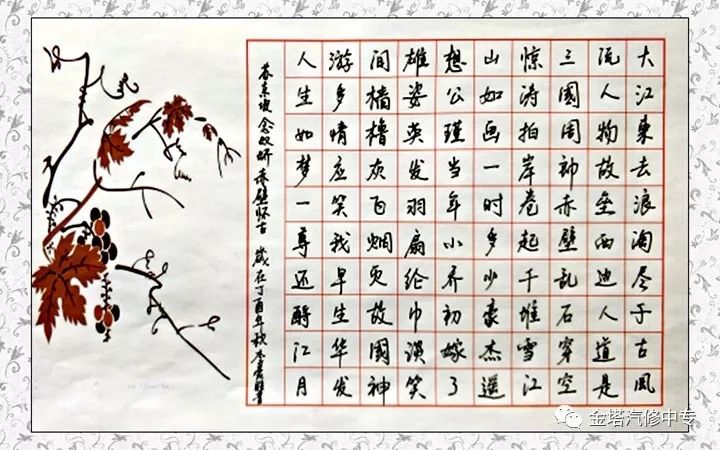 大江東去浪淘尽千古風
流人物故垒西边人道是
三國周郎赤壁乱石穿空
惊涛拍岸卷起千堆雪江
山如画一时多少豪杰遥
想公瑾当年小乔初嫁了
雄姿英发羽扇纶巾谈笑
间樯橹灰飞烟灭故國神
游多情应笑我早生华发
人生如梦一尊还酹江月
苏东坡念奴娇赤壁怀古 歲在丁酉年秋
金塔汽修中专